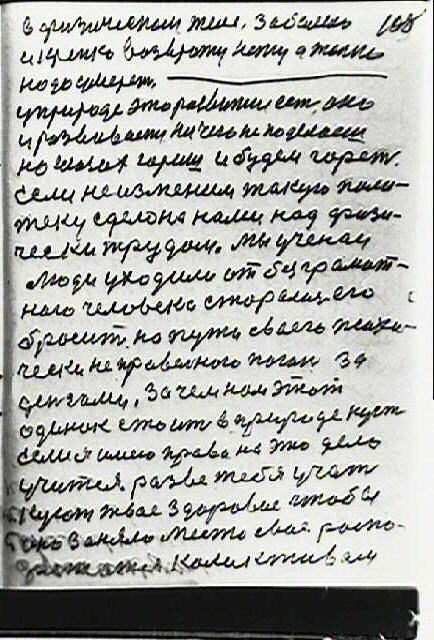 в физическом теле. Заболело 108
и крепко возврату нету а только
надо умереть.
у природе это развитие есть оно
и развивается ничего не поделаеш
на глазах гориш и будем гореть.
Если неизменим такую поли-
теку сделона нами над физи-
чески трудом. Мы ученаи
люди уходили от безграмот-
ного человека старалис его
бросит на пути своего психи-
чески неправелного погон за
денгами. Зачем нам этот
одинок стоит в природе куст
если я имею права на это дело
учится. разве тебя учат
кустом твае здоровие чтобы
оно заняло место свае распо-
колективам